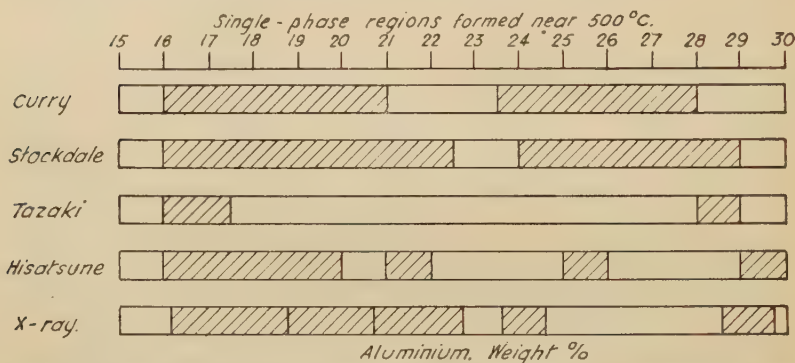 Single-phase regions formed near 500°C.
15 16 17 18 19 20 21 22 23 24 25 26 27 28 29 30
Curry
Stockdale
Tazaki
Hisatsune
X-ray.
Aluminium, Weight %